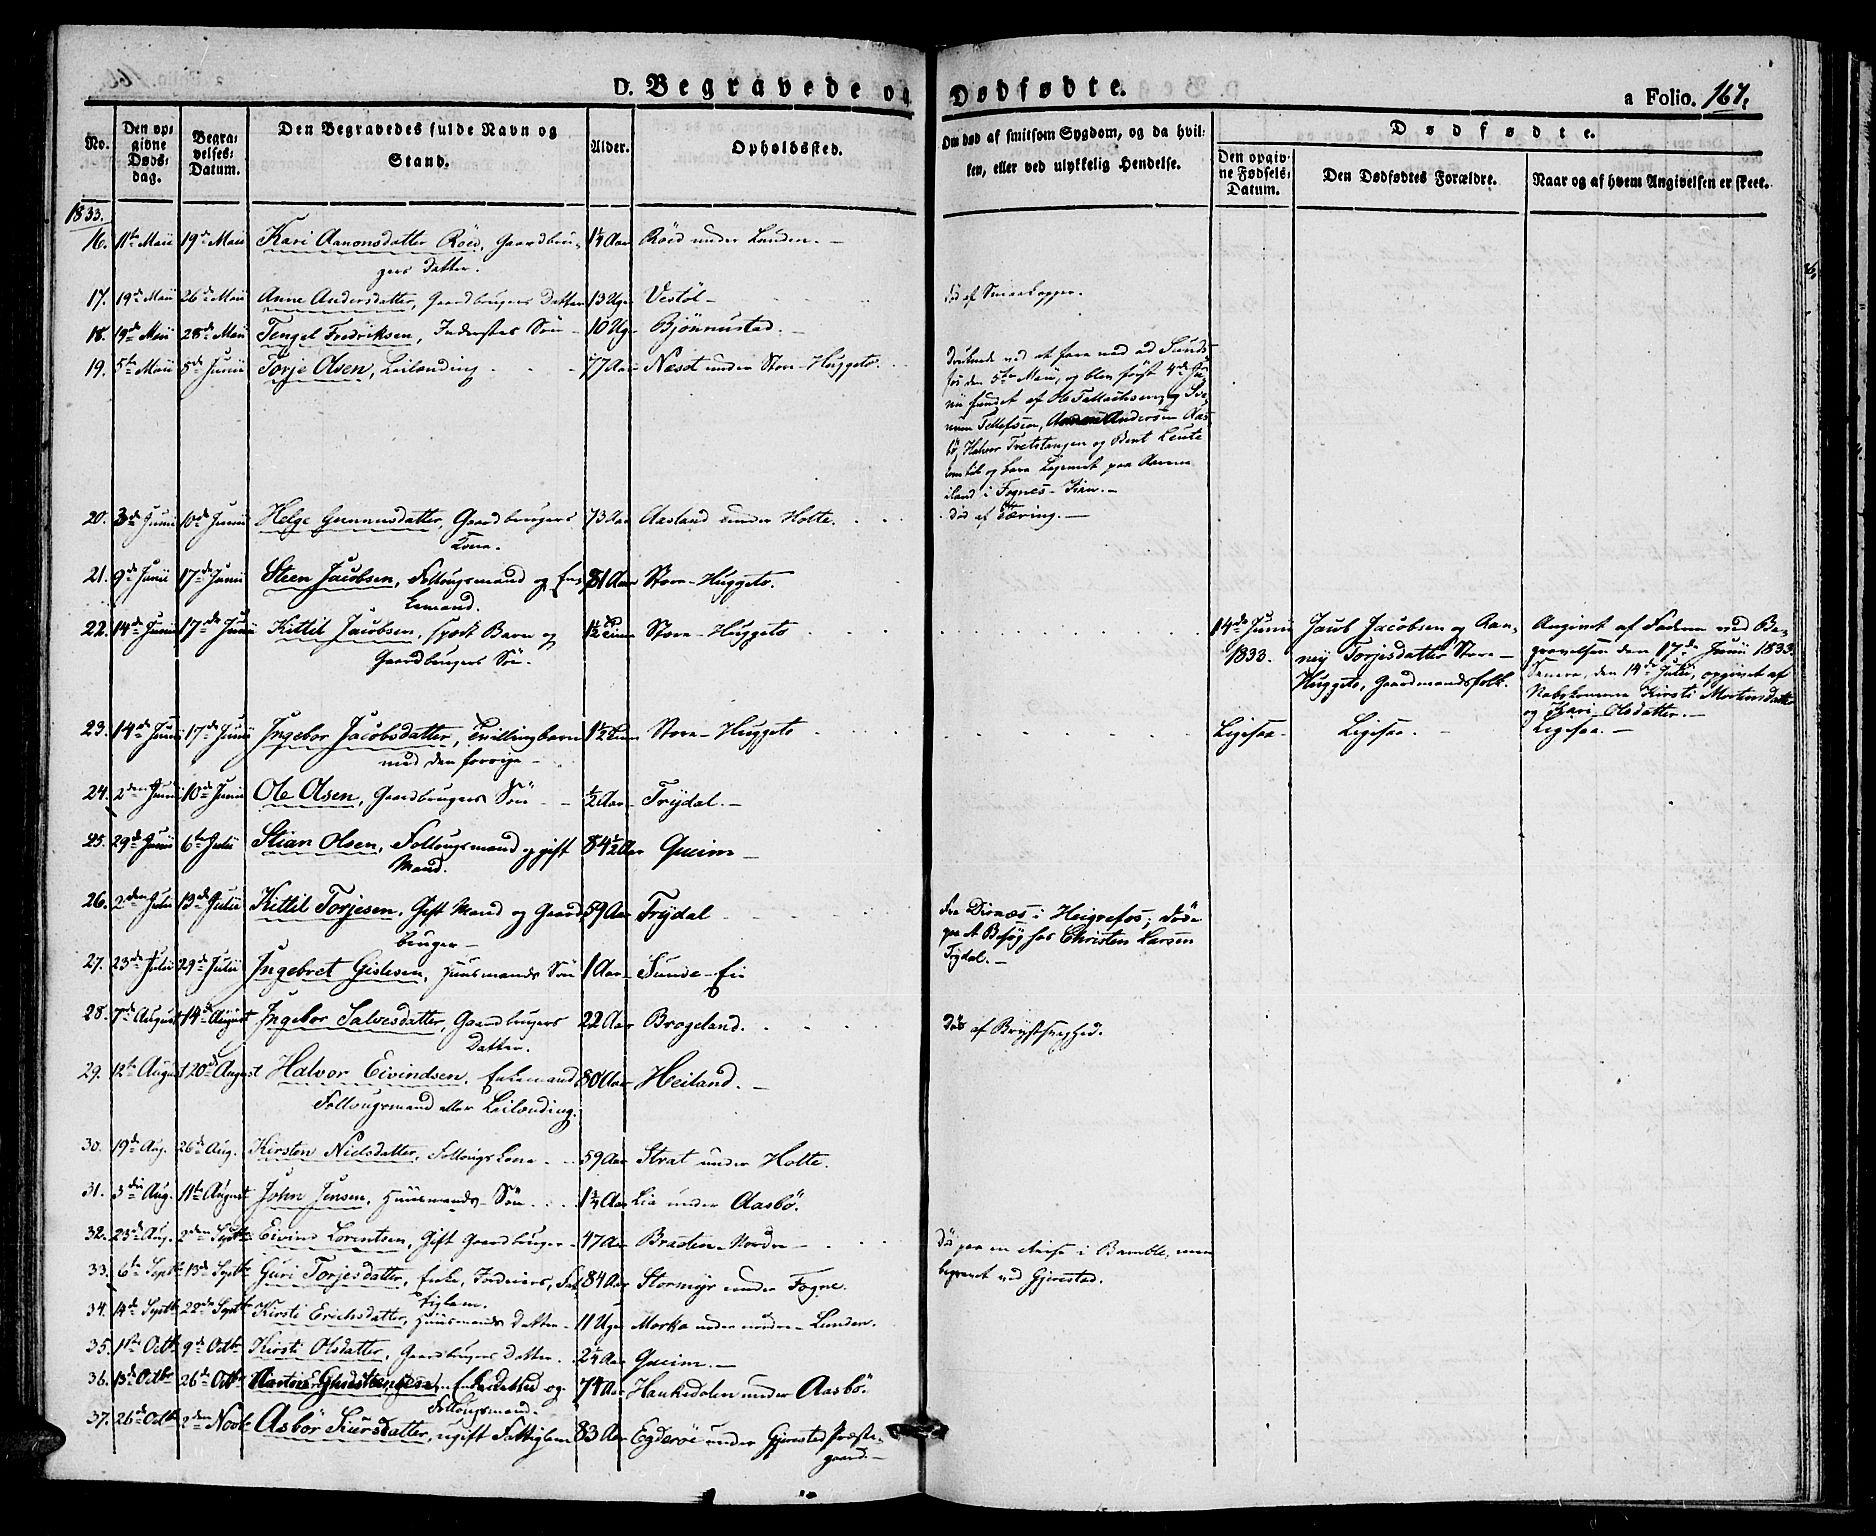 D. Begravede og Dødfødte.
a Folio. 167.
No.
Den opgivne Dødsdag.
Begravelses-Datum.
Den Begravedes fulde Navn og Stand.
Alder.
Opholdssted.
Om død af smitsom Sygdom, og da hvilken, eller ved ulykkelig Hendelse.
Dødfødte.
Den opgivne Fødsels-Datum.
Den Dødfødtes Forældre.
Naar og af hvem Angivelsen er skeet.
1833.
16. 11te Maii 19de Maii Kari Aanonsdatter Röed, Gaardbru- 1¼ Aar Röed under Lunden.
gers Datter.
17. 19de Maii 26de Maii Anne Andersdatter, Gaardbrugers Datter 13 Uger Vestöl - död af Smaakopper.
18. 19de Maii 28de Maii Tengel Fredriksen, Inderstes Sön 10 Uger Bjönnustad.
19. 5te Maii 5te Junii Torje Olsen, Leilænding 77 Aar Næset under Store-Huggeto.
druknede ved at fare ned ad Sunds-
fos den 5te Maii, og blev först 4de Ju-
nii fundet af Ole
Tellefsen, Andersen Aas-
bö, Halvor Tretstangen og Bent
og bare Legemet paa
iland i Fognes-
20. 3de Junii 10de Junii Helge Gunnusdatter, Gaardbrugers 73 Aar Aasland under Holte. död af Tæring.
Kone.
21. 9de Junii 17de Junii Steen Jacobsen, Follougsmand og En- 81 Aar Store-Huggeto.
kemand.
22. 14de Junii 17de Junii Kittil Jacobsen, spædt Barn og 1½ Time Store-Huggeto
Gaardbrugers Sön.
14de Junii 1833.
Jacob Jacobsen og Aan-
ney Torjesdatter Store-
Huggeto, Gaardmandsfolk.
Angivet af Faderen ved Be-
gravelsen den 17de Junii 1833.
Senere, den 14de Julii, opgivet af
Nabokonerne Kirsti Mortensdatter
og Kari Olsdatter.
23. 14de Junii 17de Junii Ingebor Jacobsdatter, Tvillingbarn 1½ Time Store-Huggeto Ligesaa. Ligesaa. Ligesaa.
med den forrige
24. 2den Junii 10de Junii Ole Olsen, Gaardbrugers Sön ½ Aar Trydal.
25. 29de Junii 6te Julii Stian Olsen, Follougsmand og gift 84½ Aar Qveim
Mand.
26. 2den Julii 13de Julii Kittil Torjesen, Gift Mand og Gaard- 59 Aar Trydal
bruger
Fra Dirnæs i Heigrefos; döde
paa et Besög hos Christen Larsen
Trydal.
27. 23de Julii 29de Julii Ingebret Gislesen, Huusmands Sön 1 Aar Sunde-Ei
28. 7de August 14de August Ingebor Salvesdatter, Gaardbrugers 22 Aar Brogeland. död af Brystsvaghed.
Datter.
29. 12te August 20de August Halvor Eivindsen, Enkemand 80 Aar Heiland.
Follougsmand eller Leilænding.
30. 19de Aug. 26de Aug. Kirsten Nielsdatter, Follougs Kone 59 Aar Strat under Holte.
31. 3die Aug. 11te August John Jensen, Huusmands Sön 1¼ Aar Lia under Aasbö.
32. 23de Aug. 2den Septbr Eivind Lorentsen, Gift Gaardbruger 47 Aar Brasten-Nordre
Död paa en Reise i Bamble, men
begravet ved Gjerestad.
33. 6te Septbr 13de Septbr Guri Torjesdatter, Enke, 84 Aar Stormyr under Fogne.
34. 14de Septbr 22de Septbr Kirsti Erichsdatter, Huusmands Datter 11 Uger Morka under nordre-Lunden.
35. 1ste Octbr 9de Octbr Kirsti Olsdatter, Gaardbrugers Datter 2¼ Aar Qveim.
36. 13de Octbr 26de Octbr Enkemand og 74 Aar Haukedalen under Aasbö.
Follougsmand.
37. 26de Octbr 2den Novbr Asbör Siursdatter, ugift Fattiglem 83 Aar Egderöe under Gjerestad Præste-
gaard.